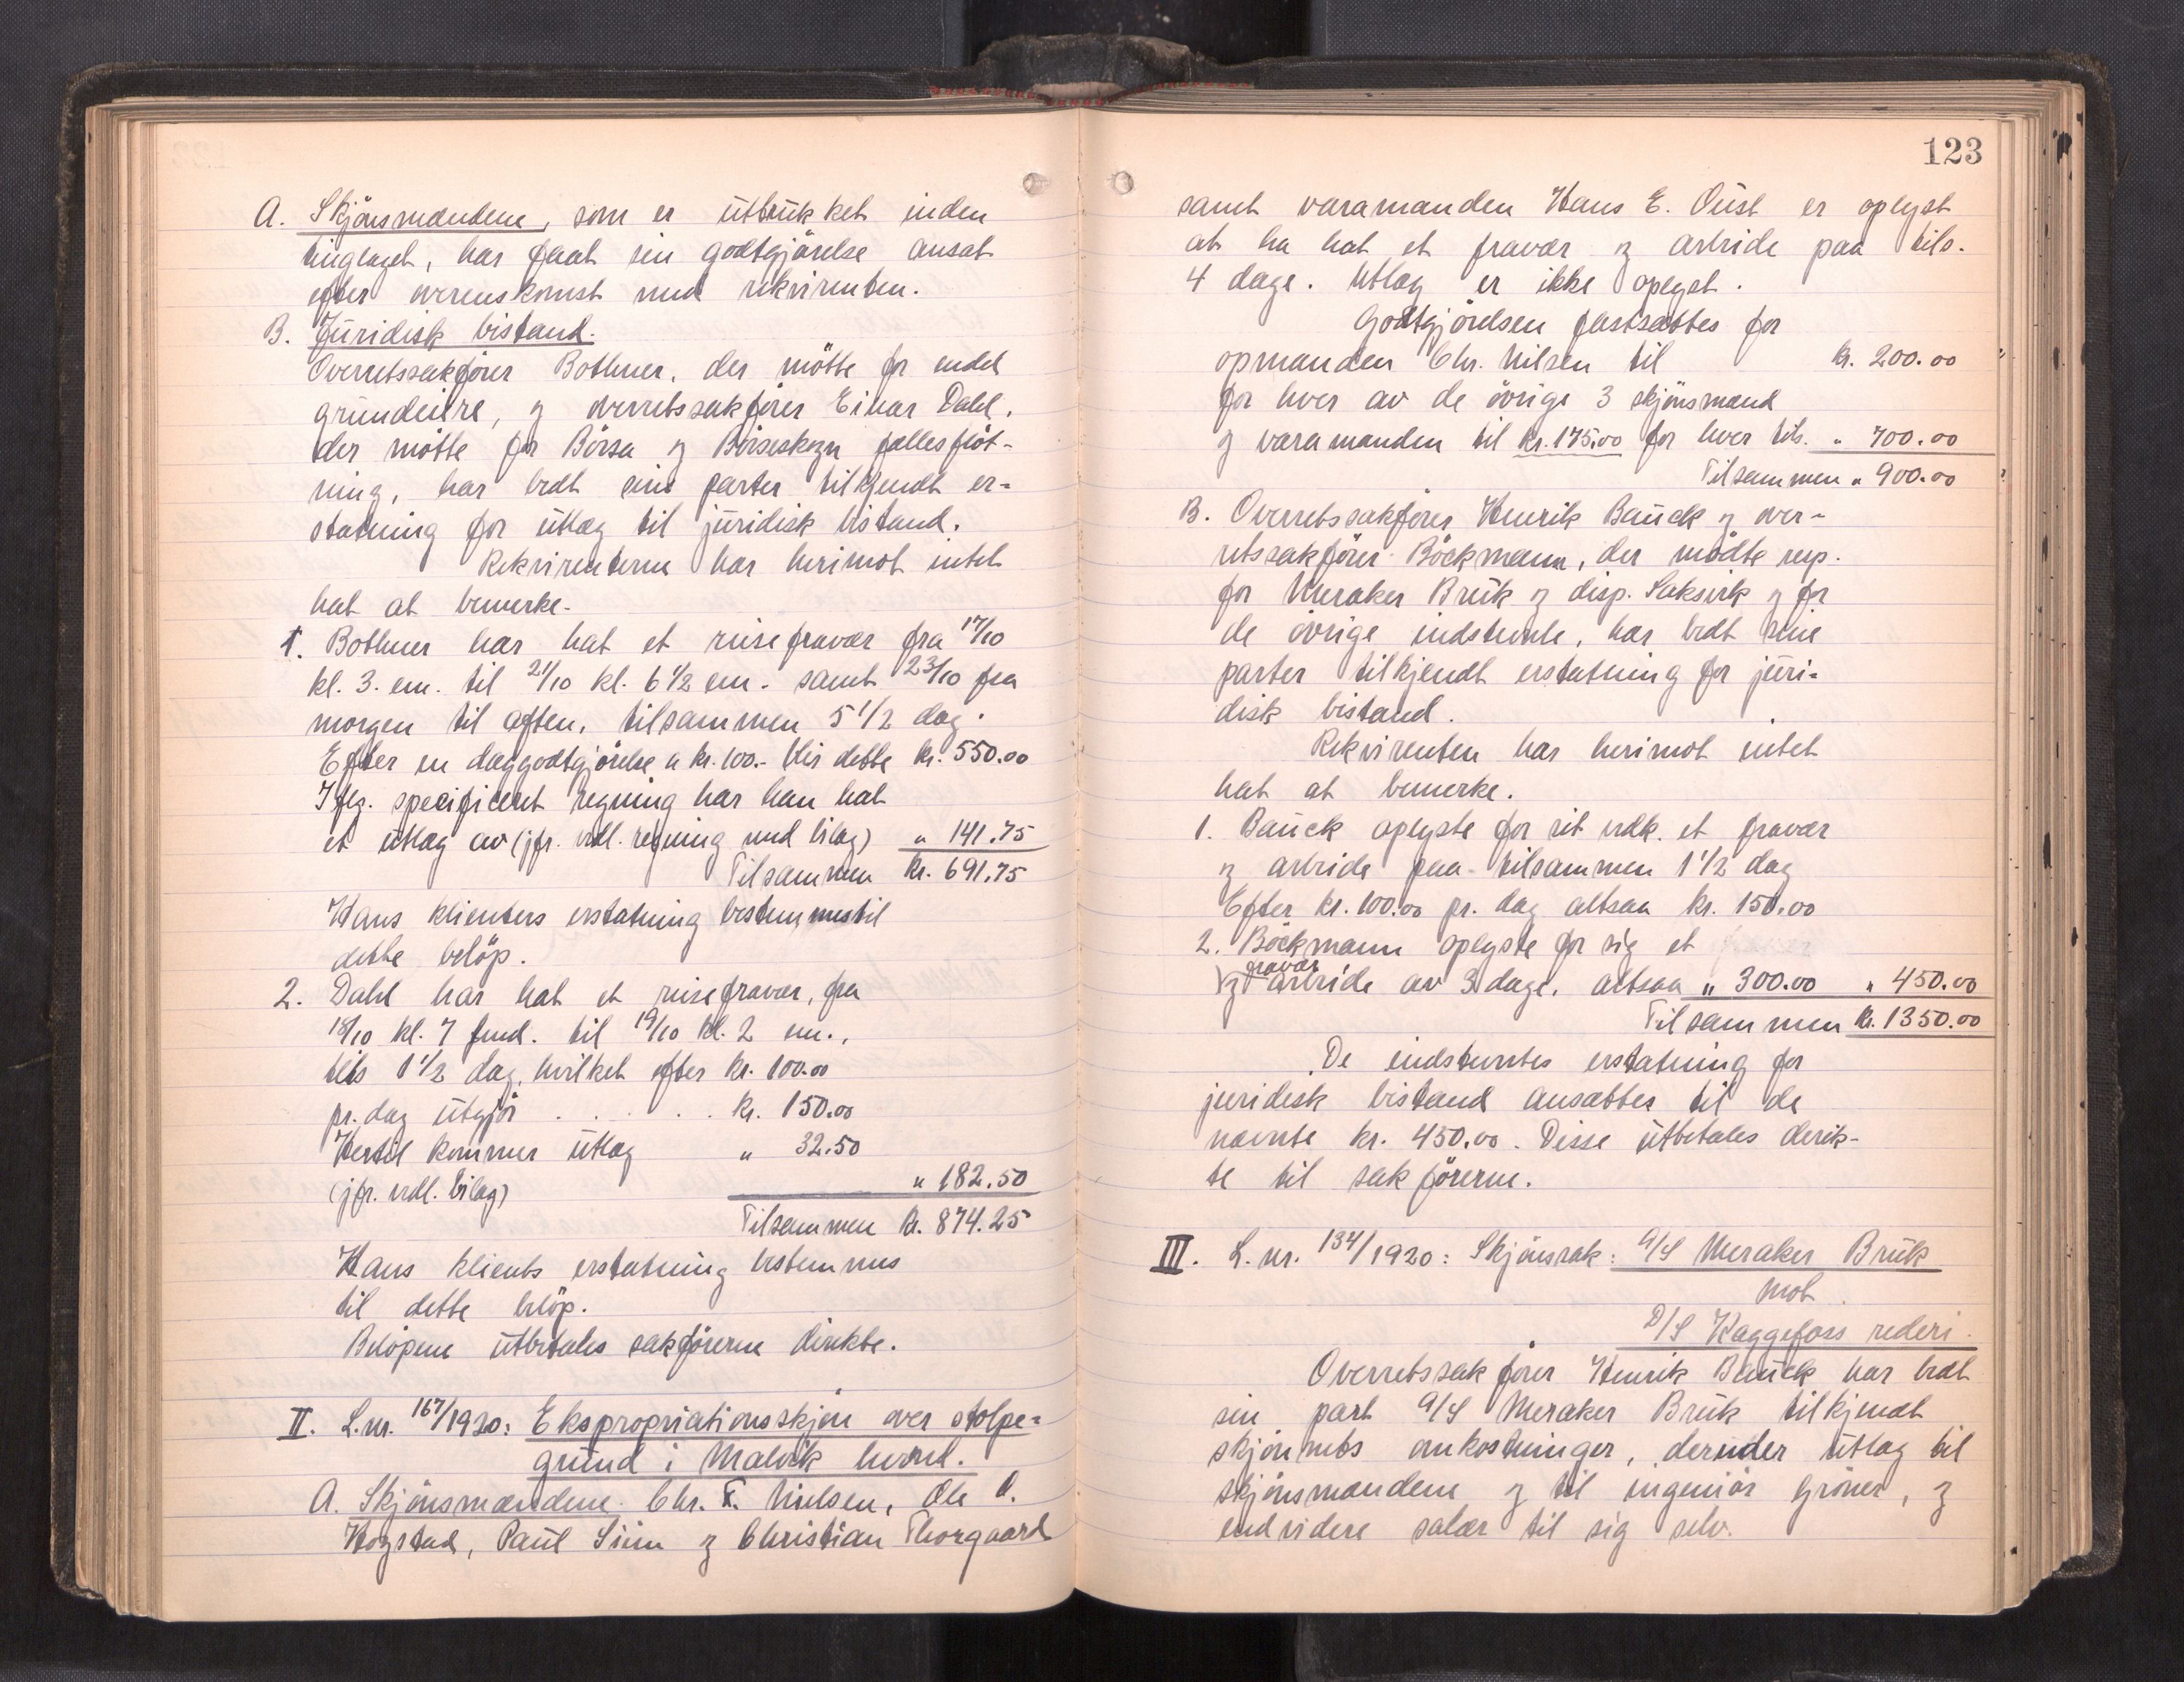 A. Skjønsmændene, som er uttrukket inden
tinglaget, har faat sin godtgjørelse ansat
efter overenskomst med rekvirenten.
B. Juridisk bistand.
Overretssakfører Bothner, der møtte for endel
grundeiere, og overretssakfører Einar Dahl,
der møtte for Börsa og Börseskogn fællesfløt-
ning, har bedt sine parter tilkjendt er-
statning for utlæg til juridisk bistand.
Rekvirenterne har herimot intet
hat at bemerke.
1. Bothner har hat et reisefravær fra 17/10
kl. 3. em. til 21/10 kl. 6 1/2 em. samt 23/10 fra
morgen til aften, tilsammen 5 1/2 dag.
Efter en daggodtgjörelse a kr. 100.- blir dette kr. 550.00
Iflg. specificeret regning har han hat
et utlæg av (jfr. vedl. regning med bilag) " 141.75
Tilsammen kr. 691.75
Hans klienters erstatning bestemmes til
dette beløp.
2. Dahl har hat et reisefravær, fra
18/10 kl. 7 fmd. til 19/10 kl. 2 em.,
tils 1 1/2 dag, hvilket efter kr. 100.00
pr. dag utgjør . . . . . kr. 150.00
Hertil kommer utlæg " 32.50
(jfr. vedl. bilag) " 182.50
Tilsammen kr. 874.25
Hans klients erstatning bestemmes
til dette beløp.
Beløpene utbetales sakførerne direkte.
II. L.nr. 167/1920: Ekspropriationsskjøn over stolpe-
grund i Malvik herred.
A. Skjønsmændene Chr. F. Nielsen, Ole O.
Hogstad, Paul Siim og Christian Thorgaard
123
samt varamanden Hans E. Oust er oplyst
at ha hat et fravær og arbeide paa tils.
4 dage. Utlæg er ikke oplyst.
Godtgjörelsen fastsættes for
opmanden Chr. Nilsen til kr. 200.00
for hver av de øvrige 3 skjønsmænd
og varamanden til kr. 175.00 for hver tils. " 700.00
Tilsammen " 900.00
B. Overretssakfører Henrik Bauck og over-
retssakfører Böckmann, der mødte resp.
for Meraker Bruk og disp. Saksvik og for
de øvrige indstevnte, har bedt sine
parter tilkjendt erstatning for juri-
disk bistand.
Rekvirenten har herimot intet
hat at bemerke.
1. Bauck oplyste for sit vedk. et fravær
og arbeide paa tilsammen 1 1/2 dag
Efter kr. 100.00 pr. dag altsaa kr. 150.00
2. Böckmann oplyste for sig et
fravær
og arbeide av 3 dage, altsaa " 300.00 " 450.00
Tilsammen kr. 1350.00
De indstevntes erstatning for
juridisk bistand ansættes til de
nævnte kr. 450.00. Disse utbetales derik-
te til sakførerne.
III. L. nr. 134/1920: Skjønssak: A/S Meraker Bruk
mot
D/S Haggefoss rederi.
Overretssakfører Henrik Bauck har bedt
sin part A/S Meraker Bruk tilkjendt
skjønnets omkostninger, derunder utlæg til
skjønsmændene og til ingeniør Grøner, og
endvidere salær til sig selv.